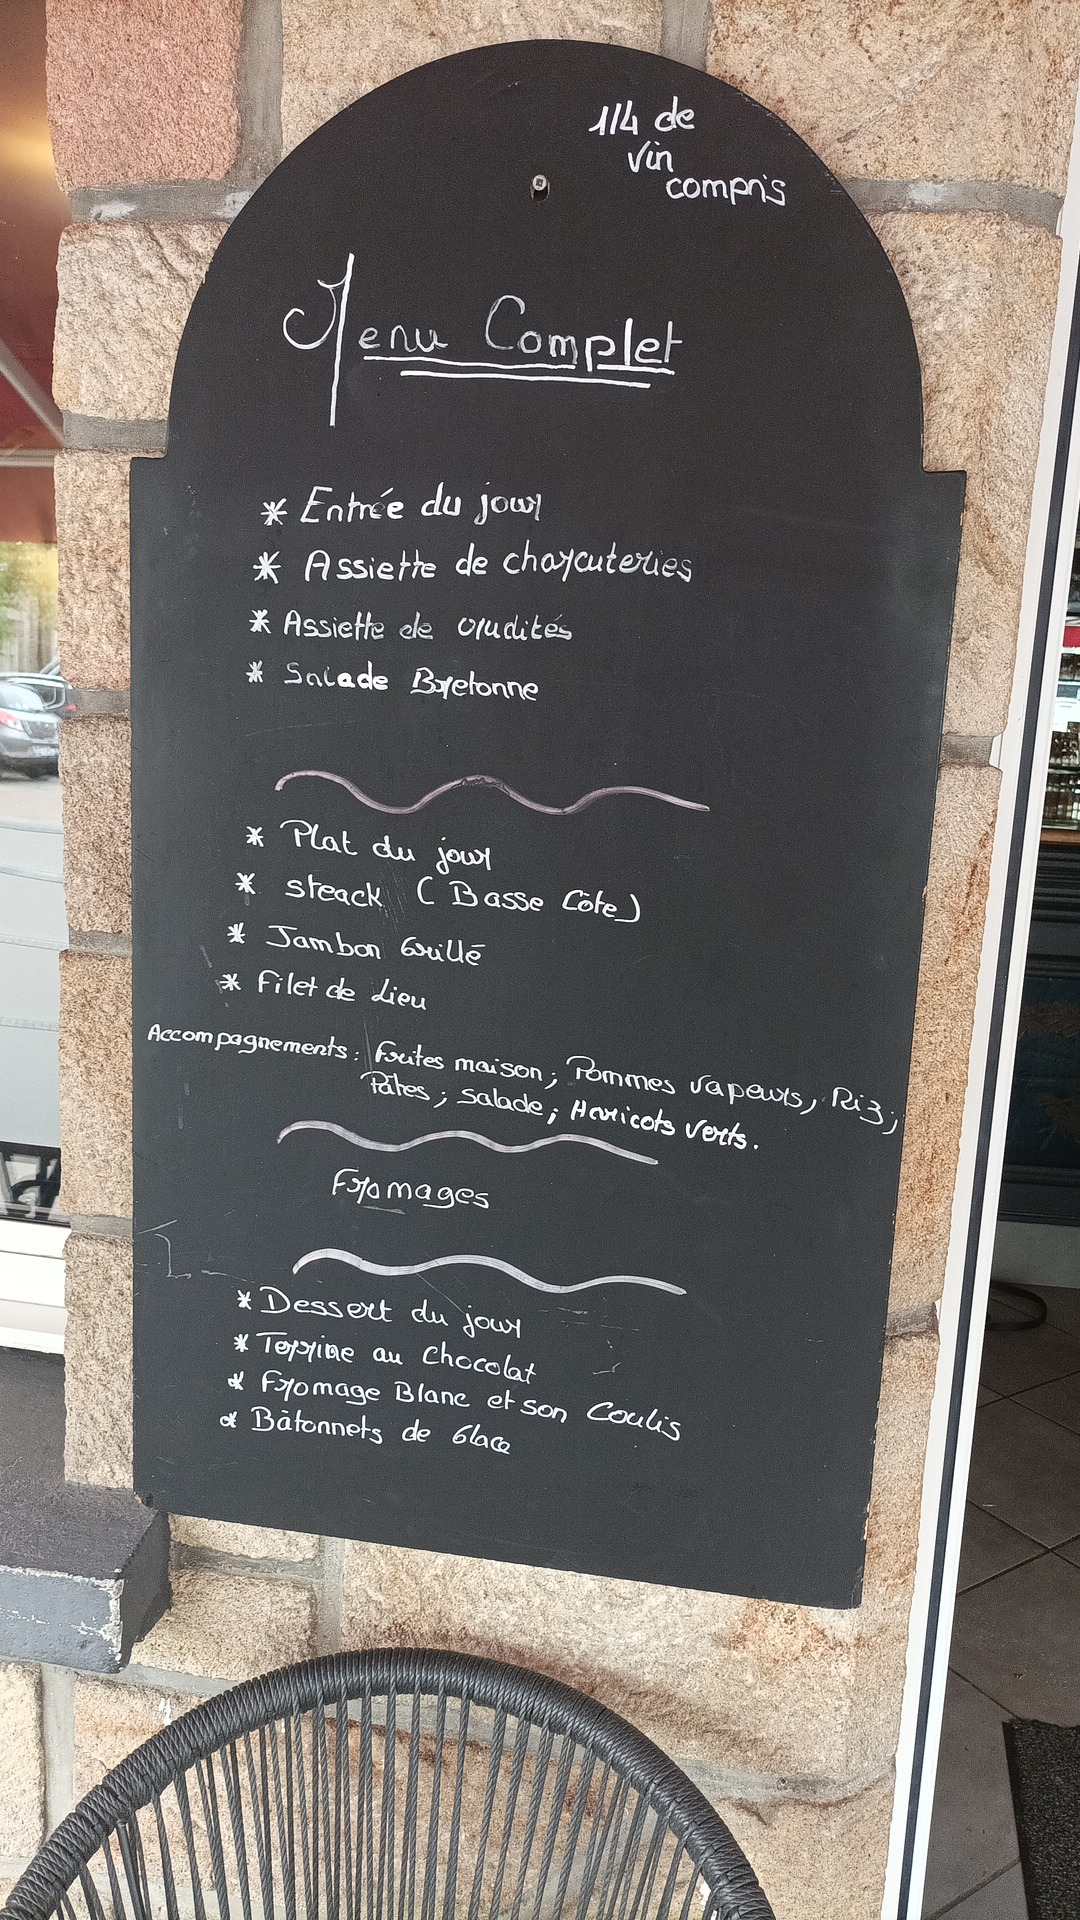 1/4 de
vin
compris
Menu Complet
* Entrée du jour
* Assiette de charcuteries
* Assiette de crudités
* Salade Bretonne
* Plat du jour
* steack (Basse Côte)
* Jambon Grillé
* Filet de Lieu
Accompagnements: Frites maison; Pommes vapeurs, Riz;
Pâtes; salade; Haricots verts.
Fromages
* Dessert du jour
* Terrine au chocolat
* Fromage Blanc et son Coulis
* Bâtonnets de Glace